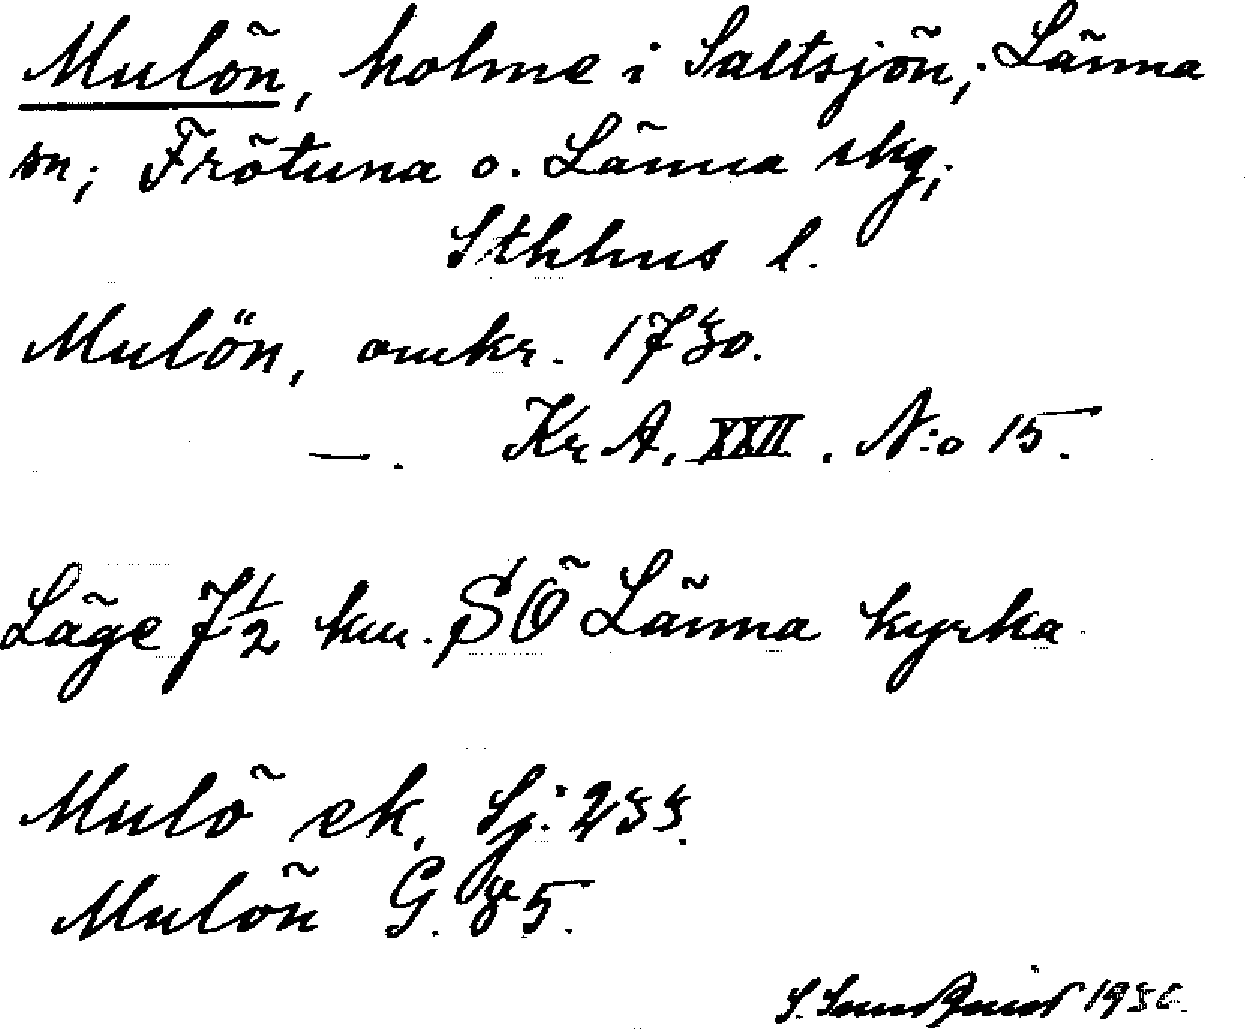 Mulön, holme i Saltsjön; Länna
sn; Frötuna o. Länna skg;
Sthlms l.
Mulön, omkr. 1730.
—. Kr A. XXII. N:o 15.
Läge 7½ km. SÖ Länna kyrka
Mulö ek. Sj: 233.
Mulön G. 85.
S. Sundquist 1936.